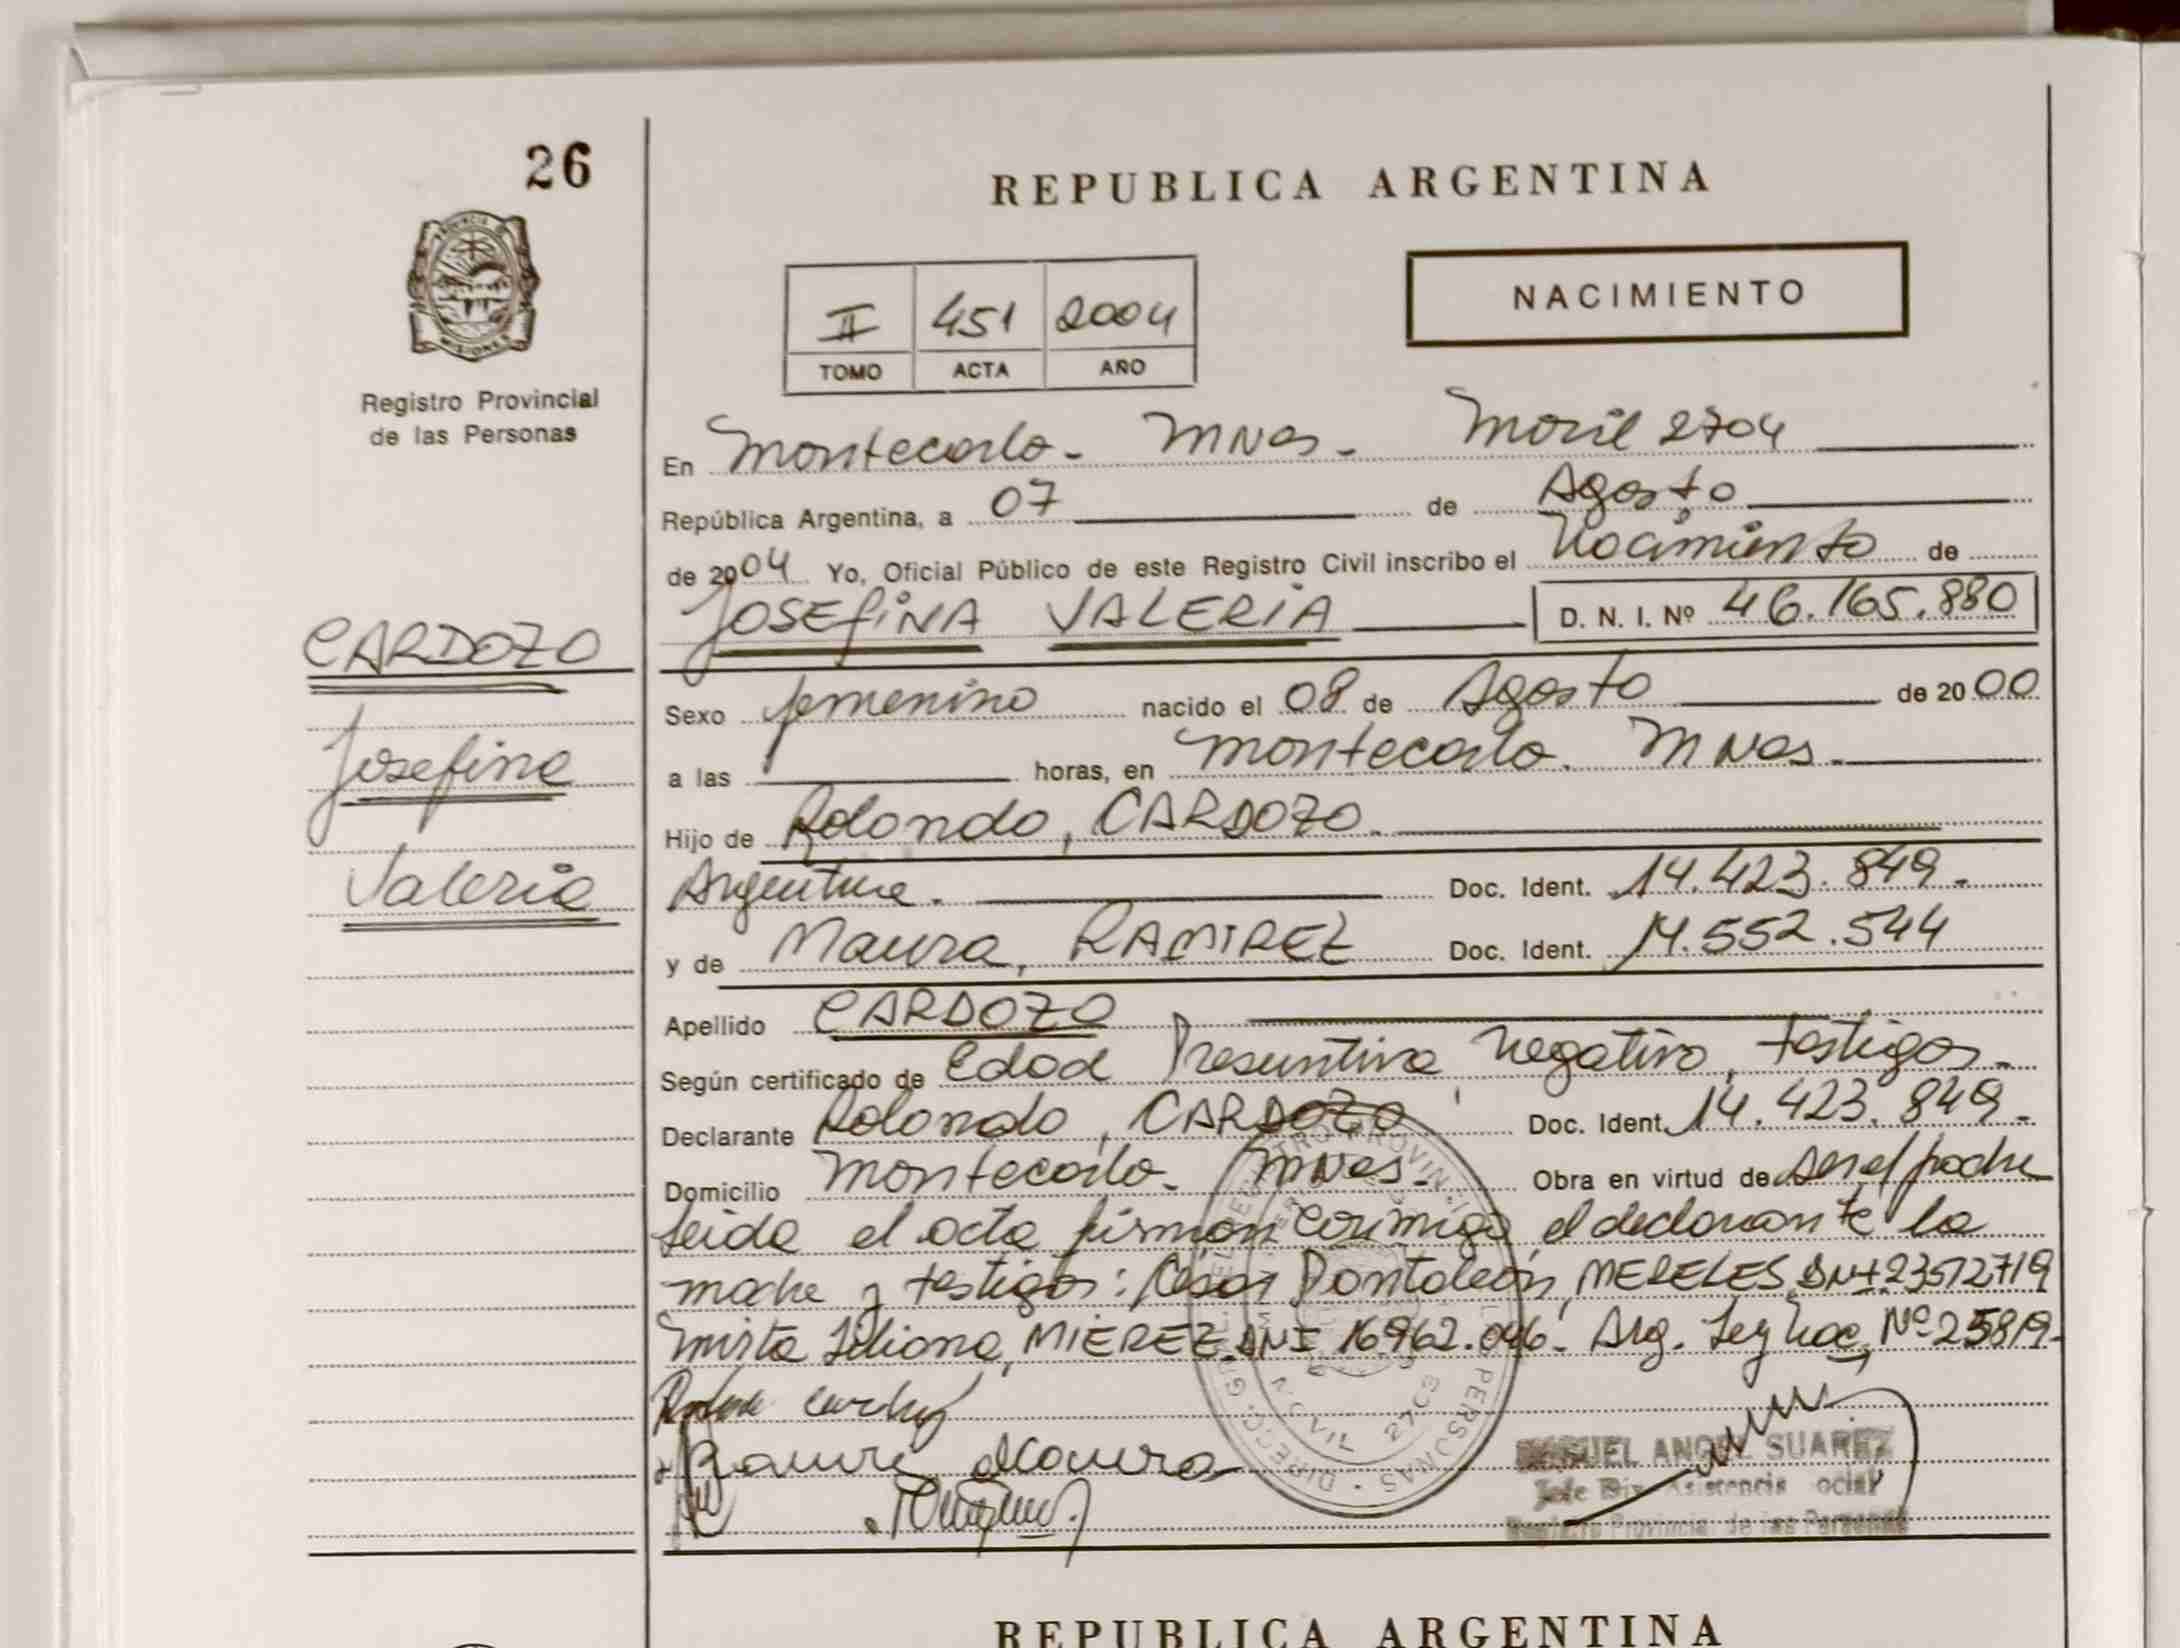 26
REPUBLICA ARGENTINA
PROVINCIA DE
MISIONES
Registro Provincial
de las Personas
II 451 2004
TOMO ACTA AÑO
NACIMIENTO
En Montecarlo - MNes - Movil 2704
República Argentina, a 07 de Agosto
de 2004 Yo, Oficial Público de este Registro Civil inscribo el Nacimiento de
JOSEFINA VALERIA D. N. I. Nº 46.165.880
CARDOZO
Josefina
Valeria
Sexo femenino nacido el 08 de Agosto de 2000
a las horas, en Montecarlo. MNes.
Hijo de Rolando, CARDOZO.
Argentina. Doc. Ident. 14.423.849.
y de Maura, RAMIREZ Doc. Ident. 14.552.544
Apellido CARDOZO
Según certificado de Edad Presuntiva, negativo, testigos.
Declarante Rolando, CARDOZO Doc. Ident. 14.423.849.
Domicilio Montecarlo. MNes. Obra en virtud de ser el padre
Leida el acta firman conmigo, el declarante la
madre y testigos: César Pantaleón, MERELES DNI 23512719
Mirta Liliana, MIEREZ DNI 16962.046. Arg. Ley Nac. Nº 25819.
MIGUEL ANGEL SUAREZ
Jefe Div. Asistencia Social
Registro Provincial de las Personas
REPUBLICA ARGENTINA